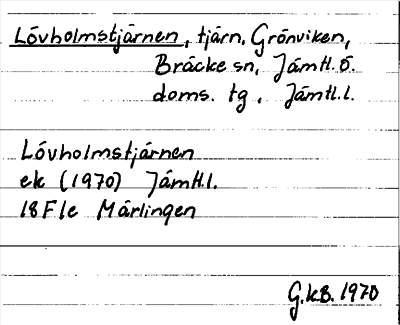 Lövholmstjärnen, tjärn, Grönviken,
Bräcke sn, Jämtl. ö.
doms. tg, Jämtl. l.
Lövholmstjärnen
ek (1970) Jämtl. l.
18F1e Märlingen
G.k.B. 1970